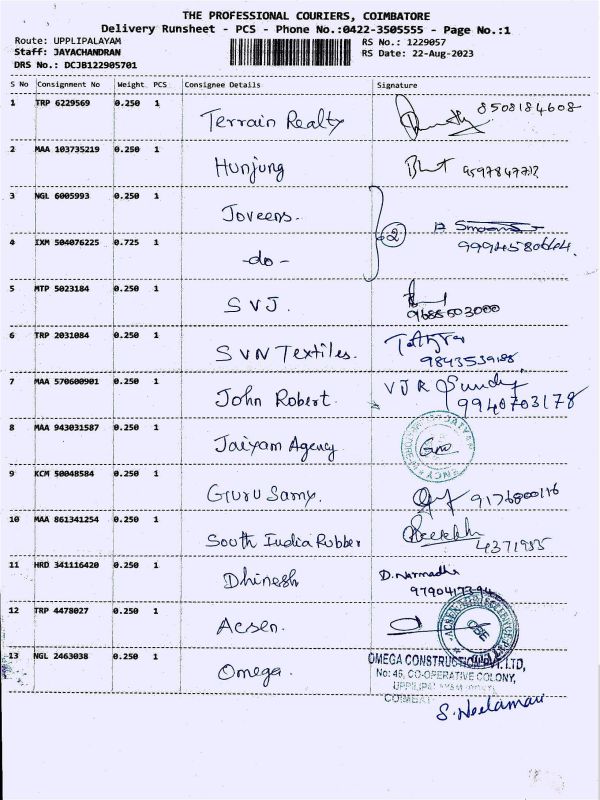 THE PROFESSIONAL COURIERS, COIMBATORE
Delivery Runsheet - PCS - Phone No.:0422-3505555 - Page No.:1
Route: UPPLIPALAYAM RS No.: 1229057
Staff: JAYACHANDRAN RS Date: 22-Aug-2023
DRS No.: DCJB122905701
S No Consignment No Weight PCS Consignee Details Signature
1 TRP 6229569 0.250 1 Terrain Realty 8508184608
2 MAA 103735219 0.250 1 Hunjung
3 NGL 6005993 0.250 1 Joveens.
4 IXM 504076225 0.725 1 -do- 2
5 MTP 5023184 0.250 1 SVJ. 9685503000
6 TRP 2031084 0.250 1 SVN Textiles.
7 MAA 570600901 0.250 1 John Robert. VJR 9940703178
8 MAA 943031587 0.250 1 Jaiyam Agency
9 KCM 50048584 0.250 1 Guru Samy. 9176800116
10 MAA 861341254 0.250 1 South India Rubber 4371985
11 HRD 341116420 0.250 1 Dhinesh D. Narmadha
12 TRP 4478027 0.250 1 Acsen.
13 NGL 2463038 0.250 1 Omega. OMEGA CONSTRUCTION PVT. LTD,
No: 46, CO-OPERATIVE COLONY,
S. Neelamani